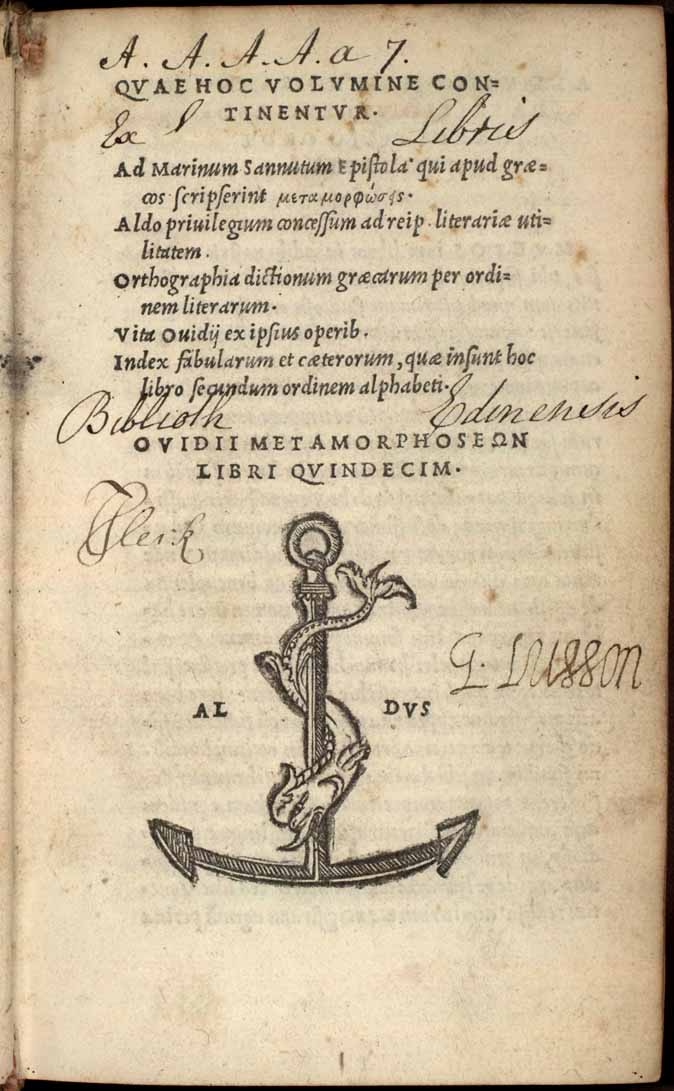 A. A. A. A. a 7.
QVAE HOC VOLVMINE CON=
TINENTVR.
Ex Libris
Ad Marinum Sannutum Epistola qui apud græ=
cos scripserint μεταμορφώσεις.
Aldo priuilegium concessum ad reip. literariæ uti=
litatem.
Orthographia dictionum græcarum per ordi=
nem literarum.
Vita Ouidij ex ipsius operib.
Index fabularum et cæterorum, quæ insunt hoc
libro secundum ordinem alphabeti.
Biblioth Edinensis
OVIDII METAMORPHOSEΩN
LIBRI QVINDECIM.
Clerk
G. Lusson
AL DVS